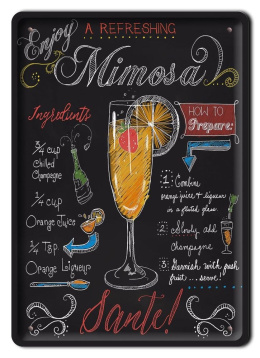 Enjoy
A REFRESHING
Mimosa
Ingredients
3/4 cup
Chilled
Champagne
1/4 cup
Orange Juice
1/4 Tsp
Orange Liqueur
HOW TO
Prepare:
1. Combine
orange juice & liqueur
in a fluted glass
2. Slowly add
champagne
3. Garnish with fresh
fruit ... serve!
Sante!